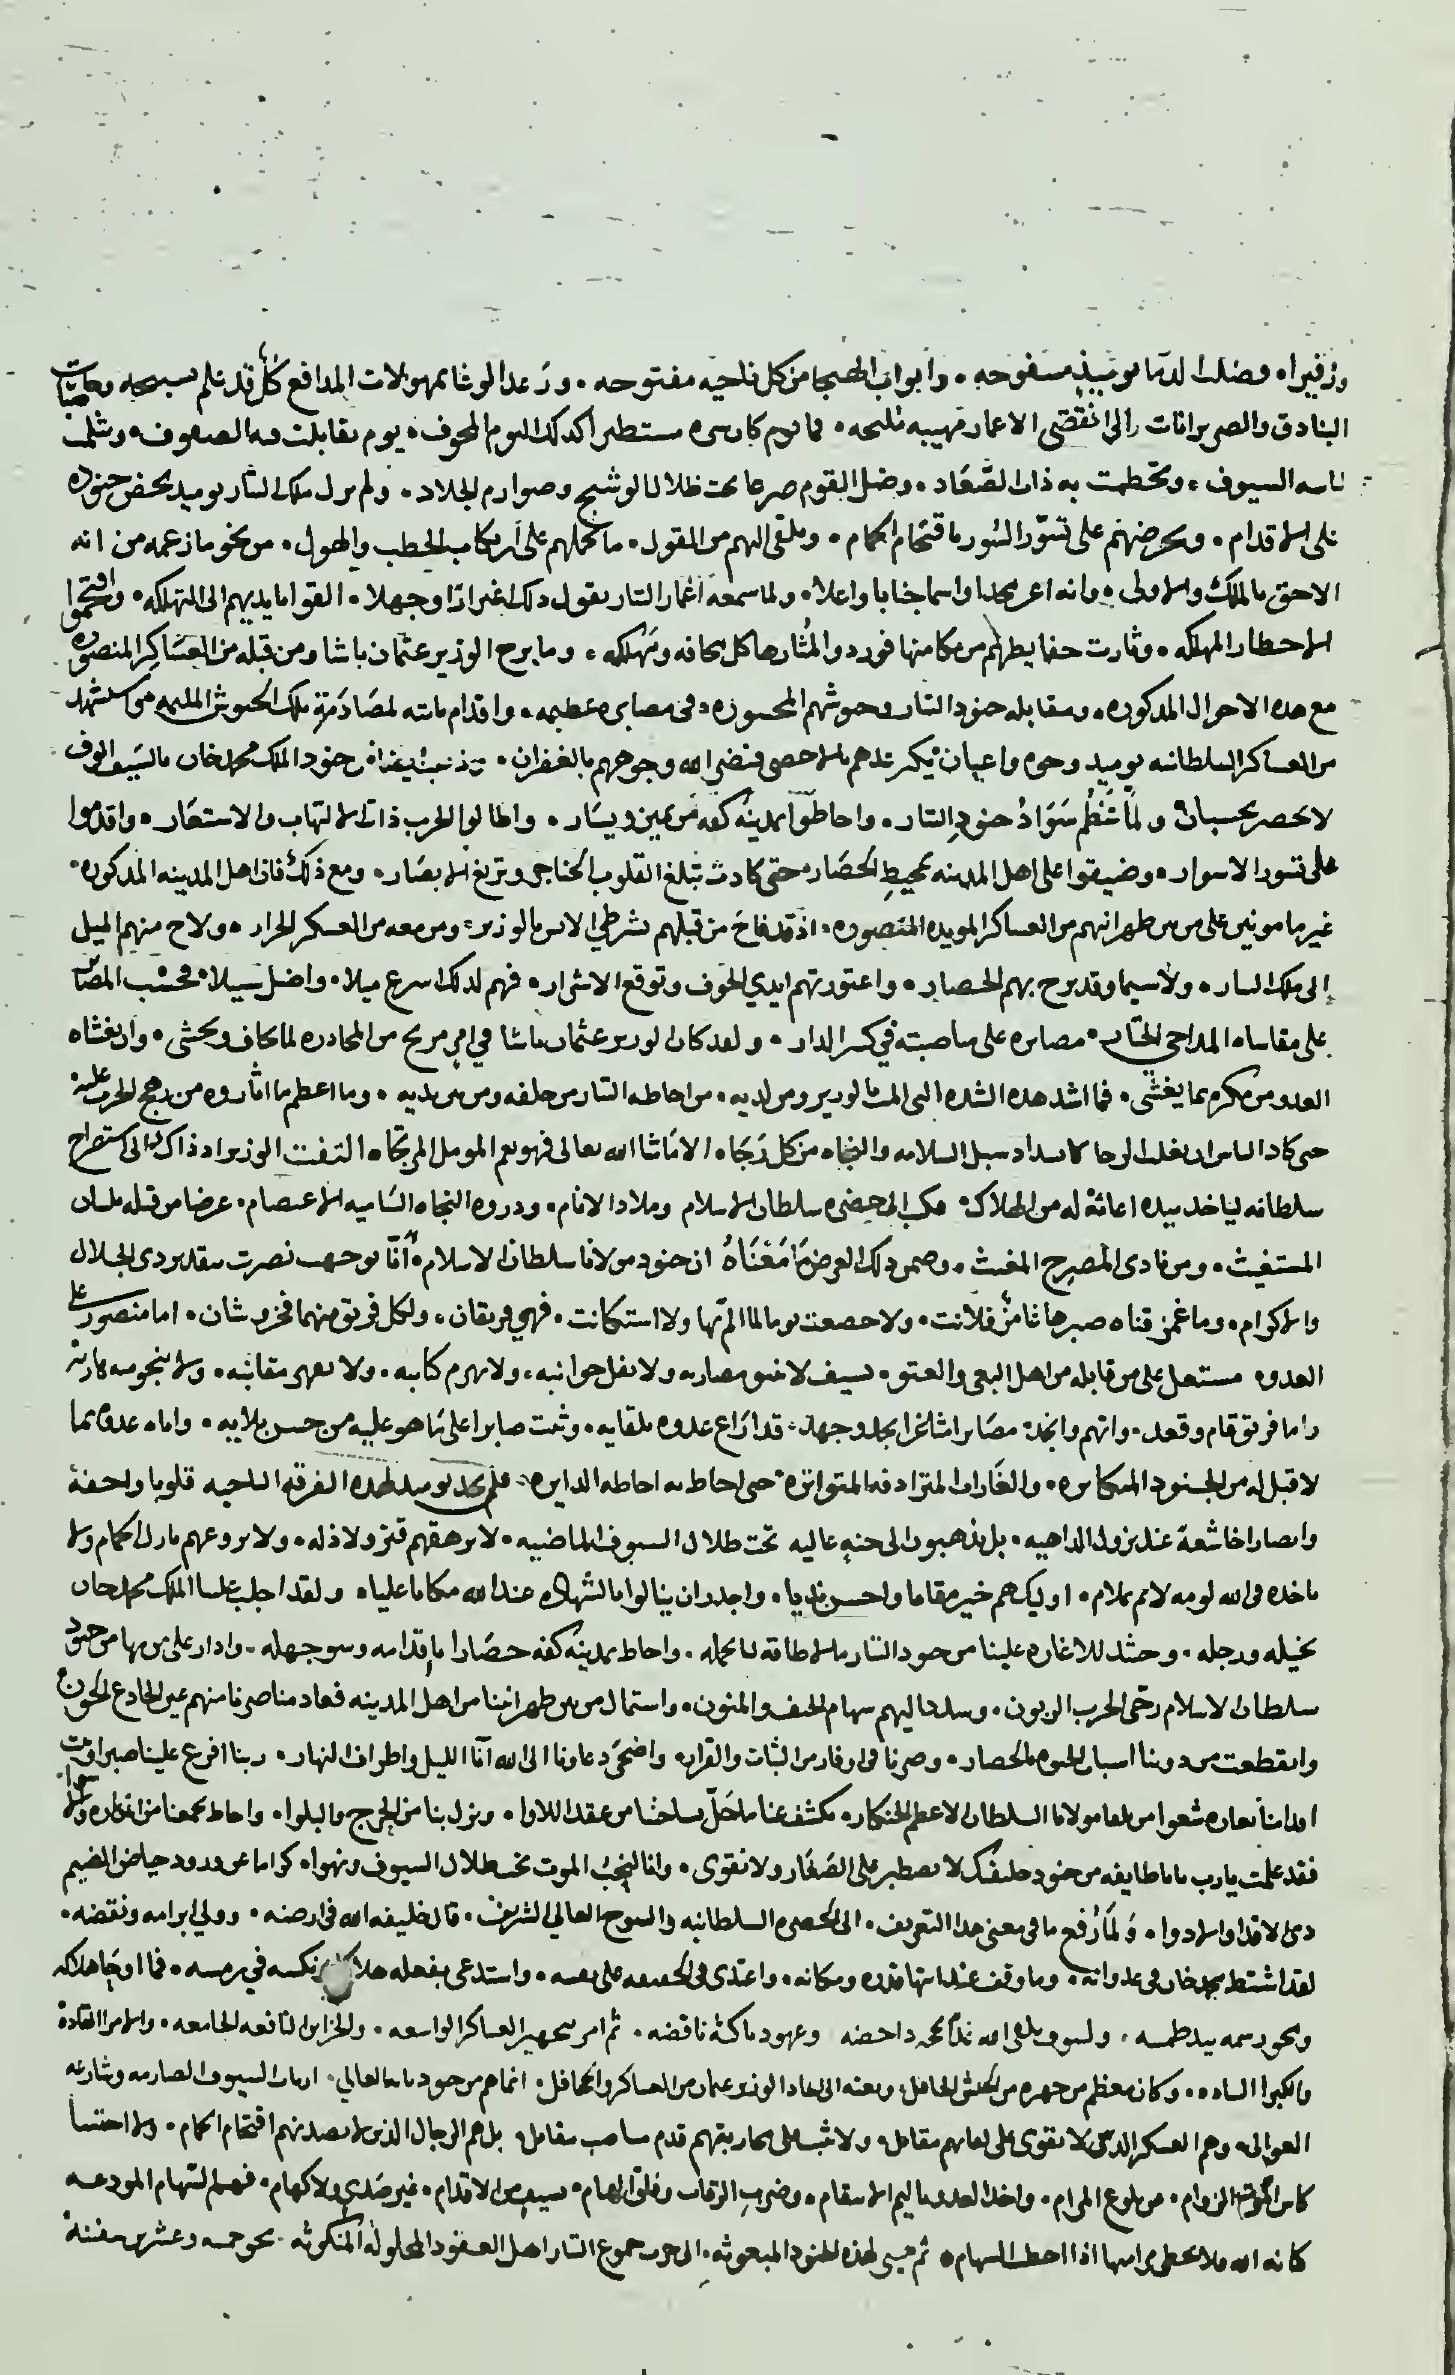 وزفيرا وضلت الدما يوميذ مسفوحه وابواب الهيجا من كل ناحيه مفتوحه ورعد الوغا بمهولات المدافع كل قد علم تسبيحه
البنادق والضربزانات الى انقضى الاعمار مهيبه مليحه فما يوم كان شره مستطيرا كذلك اليوم المخوف يوم تقابلت فيه الصفوف وتثلمت
السيوف وتحطمت به ذات الصعاد وضل القوم صرعا تحت ظلال الوشيج وصوارم الجلاد ولم يزل ملك التتار يوميذ يحض جنوده
على الاقدام ويحرضهم على تسور السور واقتحام الحمام ويلقي اليهم من المقول ما يحملهم على ارتكاب الخطب والهول من نحو ما زعمه من انه
الاحق بالملك والاولى وانه اعز مجدا واسما جنابا واعلا ولما سمعه اغمار التتار بقول ذلك اغترارا وجهلا القوا بايديهم الى التهلكه واقتحموا
الاخطار المهلكه وثارت حفايظهم من مكامنها فوردوا لمثارها كل مخافه ومهلكه وما برح الوزير عثمان باشا ومن قبله من العساكر المنصوره
مع هذه الاحوال المذكوره ومقابله جنود التتار وجيوشهم المحشوره في مصابره عظيمه واقدام ثابته لمصادمة تلك الجيوش
من العساكر السلطانيه يوميذ وجوه واعيان يكثر عدهم بالاحصى فنضر الله وجوههم بالغفران جنود الملك محمد خان بالسيف الوف
لا تحصر بحسبان ولما تنظم سواد جنود التتار واحاطوا بمدينة كفه من يمين ويسار واطالوا الحرب ذات الالتهاب والاستعار واقدموا
على تسور الاسوار وضيقوا على اهل المدينه بمحيط الحصار حتى كادت تبلغ القلوب الحناجر وتزيغ الابصار ومع ذلك فان اهل المدينه المذكوره
غير مامونين على من بين ظهرانيهم من العساكر المويده المنصوره اذ قد فاح من قبلهم بالوزير ومن معه من العسكر الجرار ولاح منهم الميل
الى ملك التتار ولا سيما وقد برح بهم الحصار واعتورتهم ايدي الخوف وتوقع الاشرار فهم لذلك اسرع ميلا واضل سبيلا
على مقاساه المداجي مصابره على مناصبته في كسر الدار ولقد كان الوزير عثمان باشا في امر مريج من المحاذره لما يخاف ويخشى وان يغشاه
العدو من مكره بما يغشى فما اشد هذه الشده التي المت بالوزير ومن لديه من احاطه التتار من خلفه ومن بين يديه وما اعظم ما اثاروه من رهج الحرب عليه
حتى كاد الياس ان يغلب الرجا بانسداد سبل السلامه والنجاه من كل رجاه الا ما شا الله تعالى فهو نعم المومل المرتجاه التفت الوزير اذ ذاك الى استصراخ
سلطانه لياخذ بيده اعانة له من الهلاك فكتب الى حضرة سلطان الاسلام وملاذ الانام وذروه النجاه الساميه الاعتصام عرضا من قبله بلسان
المستغيث ومن نادى المصرخ المغيث وضمن ذلك العرض ما معناه ان جنود مولانا سلطان الاسلام انا توجهت نصرت بتقدير ذي الجلال
والاكرام وما غمز قناة صبرها غامز فلانت ولا خضعت يوما لما الم بها ولا استكانت فهي فريقان ولكل فريق منهما فخر وشان اما منصور على
العدو مستعل على من قابله من اهل البغي والعتو بسيف لا تنبو مضاربه ولا تفل جوانبه ولا تهزم كتايبه ولا تقهر مقانبه ولا ينجو منه هاربه
واما فريق قام وقعد واتهم وانجد مصابرا مثاغرا بجد وجهد قد اراع عدوه بلقايه وثبت صابرا على ما هو عليه من حسن بلايه واتاه عدوه بما
لا قبل له من الجنود المتكاثره والغارات المترادفه المتواتره حتى احاط به احاطه الدايره فلم يجد يوميذ لهذه الفرقه الناجيه قلوبا واجفة
وابصارا خاشعة عند نزول الداهيه بل يذهبون الى جنه عاليه تحت ظلال السيوف الماضيه لا يرهقهم قتر ولا ذله ولا يروعهم نازل الحمام ولا
تاخذه في الله لومه لايم بملام اوليك هم خير مقاما واحسن نديا واجدر ان ينالوا بالشهاده عند الله مكانا عليا ولقد اجلب علينا الملك محمد خان
بخيله ورجله وحشد للاغاره علينا من جنود التتار ما لا طاقه لنا بحمله واحاط بمدينة كفه حصارا باقدامه وسو جهله وادار على من بها من جنود
سلطان الاسلام رحى الحرب الزبون وسدد اليهم سهام الحتف والمنون واستمال من بين ظهرانينا من اهل المدينه فعاد مناصرنا منهم عين الخادع الخون
وانقطعت من دوننا اسباب النجوه بالحصار وصرنا في اوقار من الثبات والقرار واضحى دعاونا الى الله آنا الليل واطراف النهار ربنا افرغ علينا صبرا وثبت
اقدامنا بغاره شعوا من تلقا مولانا السلطان الاعظم الخنكار تكشف عنا ما حل بساحتنا من عقد اللاوا ونزل بنا من الحرج والبلوا واحاط بجمعنا من
فقد علمت يارب باننا طايفه من جنود خليفتك لا نصطبر على الصغار ولا نقوى وانا لنحب الموت تحت ظلال السيوف ونهوا كراما عن ورود حياض الضيم
ذي الاقذا والادوا ولما رفع ما في معنى هذا التعريف الى الحضره السلطانيه والسوح العالي الشريف قال خليفه الله في ارضه وولي ابرامه ونقضه
لقد اشتط محمد خان في عدوانه وما وقف عند انتها قدره ومكانه واعتدى في الحقيقه على نفسه واستدعى بفعله هلاكه ونكسه في رمسه فما اوحا هلاكه
ومحو رسمه بيد طمسه ولسوف يلقى الله بحجه داحضه وعهود ناكثة ناقضه ثم امر بتجهيز العساكر الواسعه والخزاين النافعه الجامعه والامرا القادة
والكبرا الساده وكان معظم من جهزه من الجيش الحافل وبعثه الى انجاد الوزير عثمان من العساكر والجحافل انما هم من جنود بابه العالي ارباب السيوف الصارمه وشارعه
العوالي وهم العسكر الذي لا يقوى على لقايهم مقاتل ولا تثبت على محاربتهم قدم مناصب مقابل بل هم الرجال الذين لا يصدهم اقتحام الحمام ولا احتسا
كاس الموت الزوام من بلوغ المرام واخذ العدو باليم الانتقام وضرب الرقاب وفلق الهام بسيف من الاقدام غير صدي ولا كهام فهم السهام المودعه
كنانه الله فلا تخطي مراميها اذا اخطت السهام ثم هيى لهذه الجنود المبعوثه الى حرب جموع التتار اهل العقود المحلوله المنكوثه نحو خمسه وعشرين سفينة